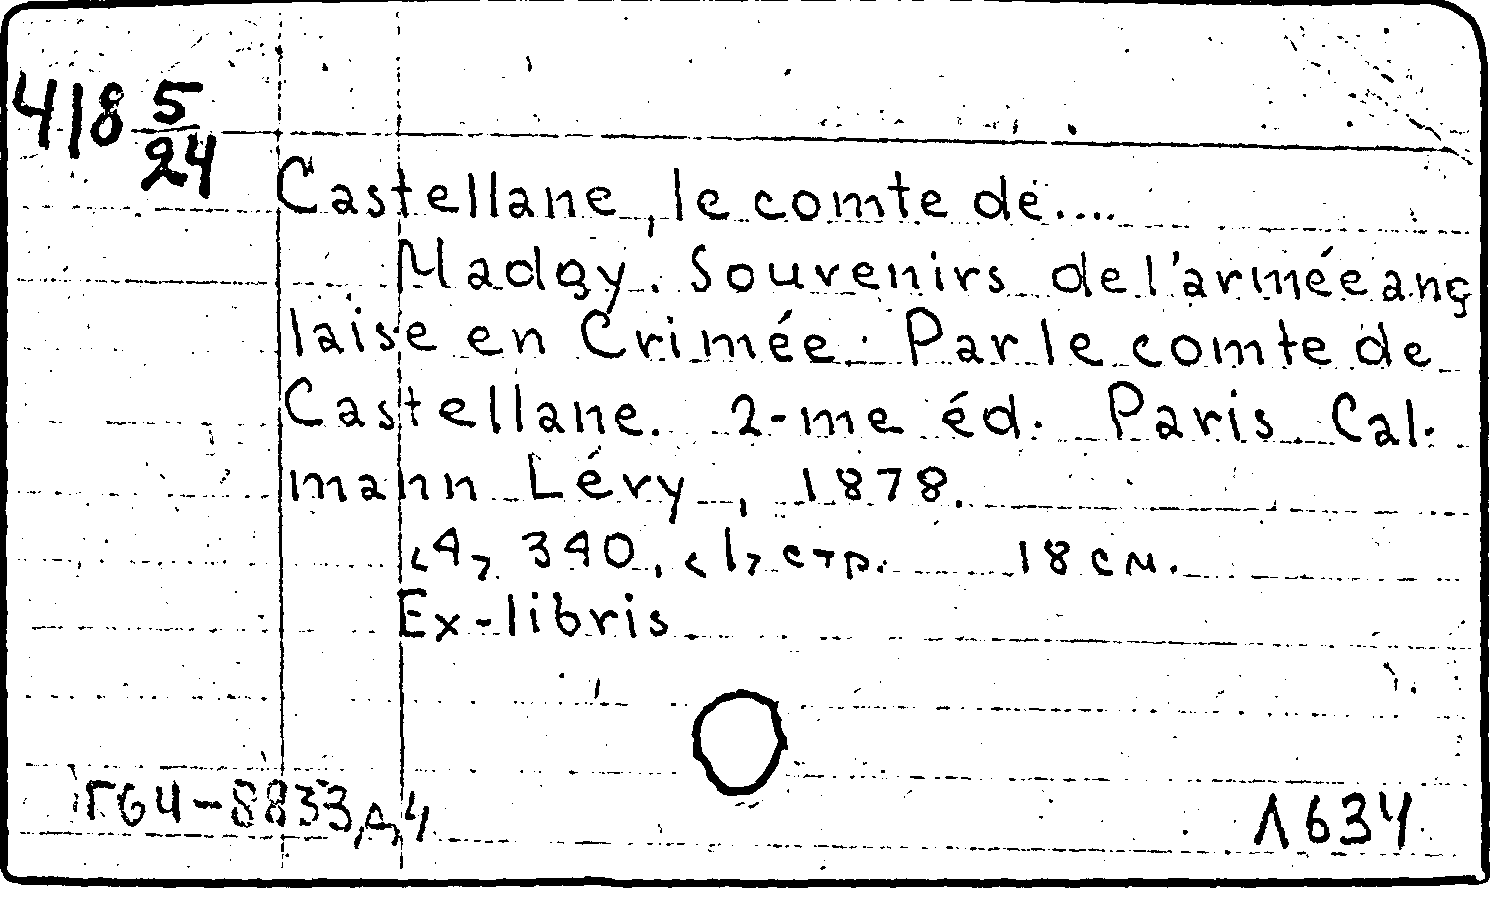 418 5/24
Castellane, le comte de....
Madgy. Souvenirs de l'armée anç
laise en Crimée. Par le comte de
Castellane. 2-me éd. Paris Cal-
mann Lévy, 1878.
<4> 340, <1> стр. 18 см.
Ex-libris
Г64-8833,д,4
Л634